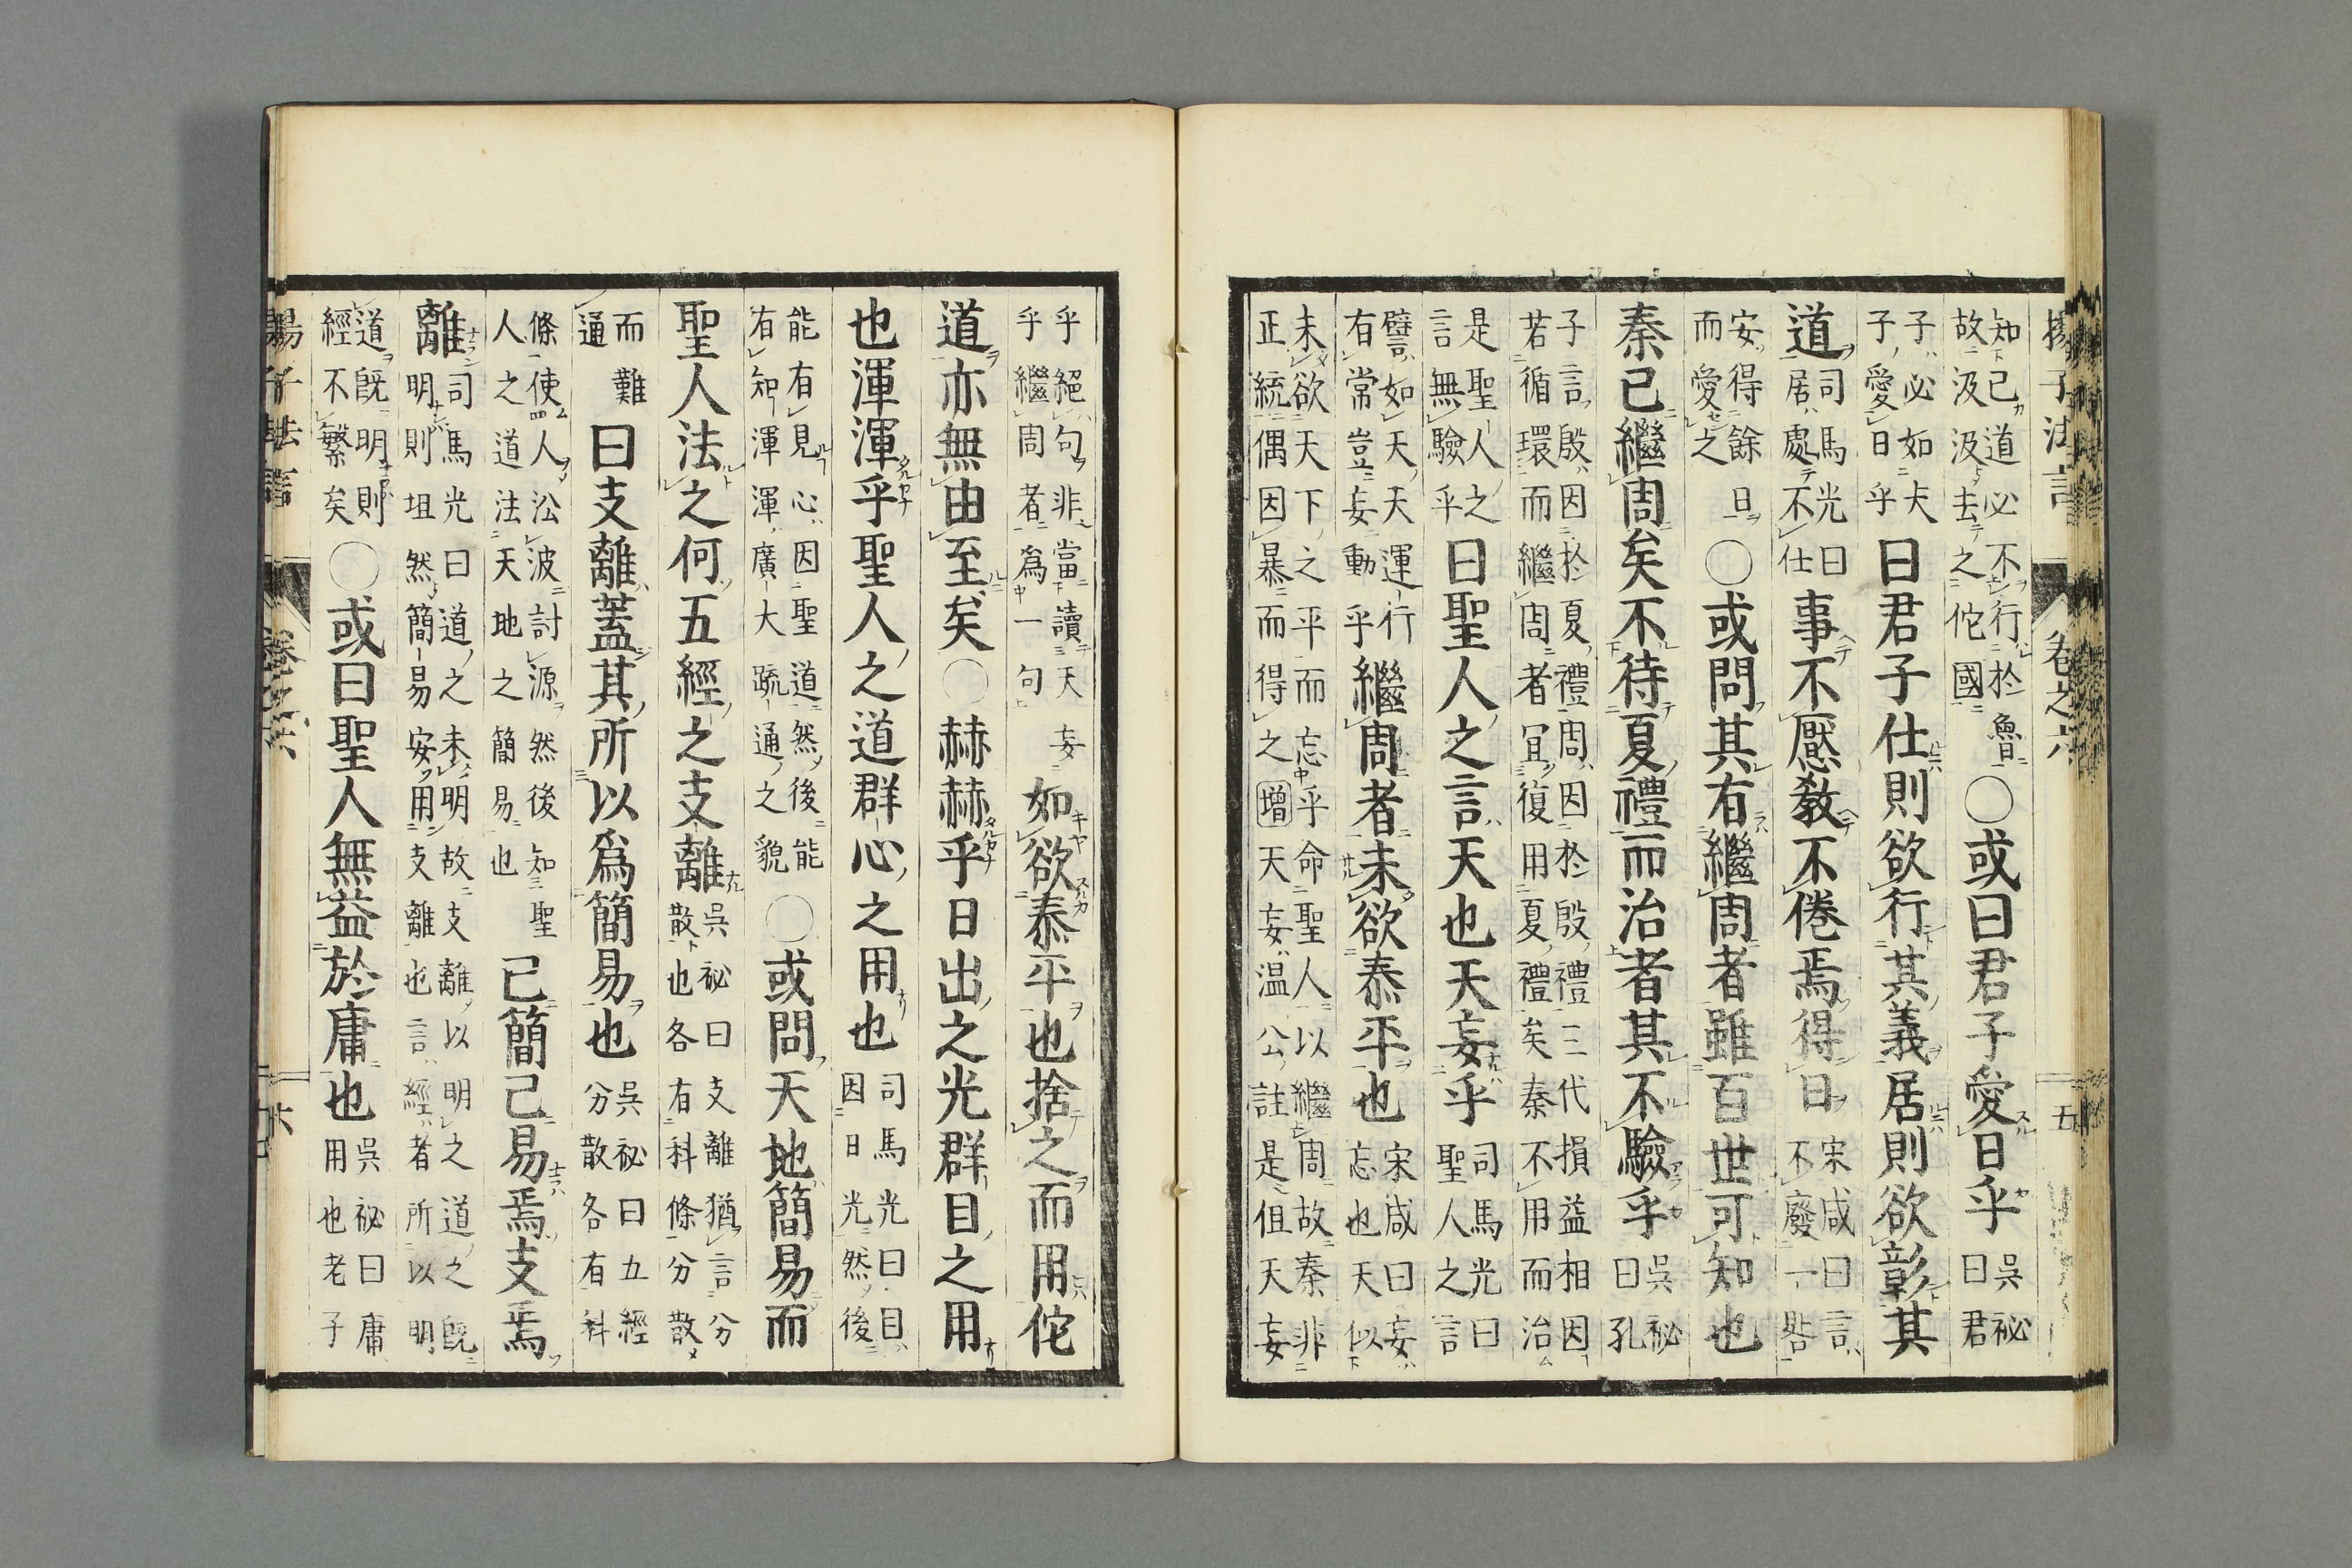 揚子法言 卷之六 五
知己道必不行於魯
故汲汲去之佗國
○或曰君子愛日乎
吳祕
曰君
子必如夫
子愛日乎
曰君子仕則欲行其義居則欲彰其
道
司馬光曰
居處不仕
事不厭教不倦焉得日
宋咸曰言
不廢一晷
安得餘日
而愛之
○或問其有繼周者雖百世可知也
秦已繼周矣不待夏禮而治者其不驗乎
吳祕
曰孔
子言殷因於夏禮周因於殷禮三代損益相因
若循環而繼周者宜復用夏禮矣秦不用而治
是聖人之
言無驗乎
曰聖人之言天也天妄乎
司馬光曰
聖人之言
譬如天天運行
有常豈妄動乎
繼周者未欲泰平也
宋咸曰妄
忘也天似
未欲天下之平而忘乎命聖人以繼周故秦非
正統偶因暴而得之增天妄温公註是但天妄
乎絕句非當讀天妄
乎繼周者為一句
如欲泰平也捨之而用佗
道亦無由至矣○赫赫乎日出之光群目之用
也渾渾乎聖人之道群心之用也
司馬光曰目
因日光然後
能有見心因聖道然後能
有知渾渾廣大疏通之貌
○或問天地簡易而
聖人法之何五經之支離
吳祕曰支離猶言分
散也各有科條分散
而難
通
曰支離蓋其所以爲簡易也
吳祕曰五經
分散各有科
條使人沿波討源然後知聖
人之道法天地之簡易也
已簡已易焉支焉
離
司馬光曰道之未明故支離以明之道之既
明則坦然簡易安用支離也言經者所以明
道既明則
經不繁矣
○或曰聖人無益於庸也
吳祕曰庸
用也老子
揚子法言 卷之六 六